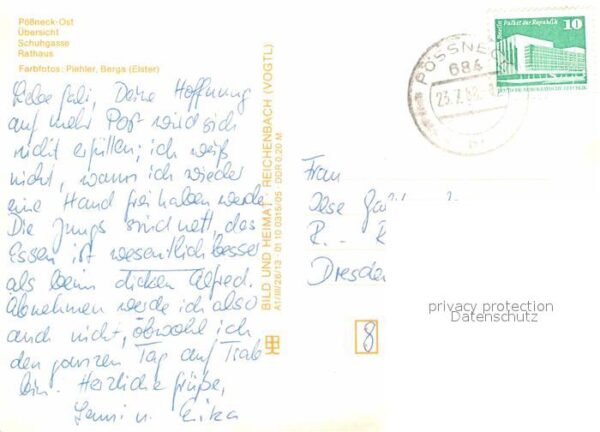 Pößneck-Ost
Übersicht
Schuhgasse
Rathaus
Farbfotos: Piehler, Berga (Elster)
Deine Hoffnung
auf mehr Post wird sich
nicht erfüllen; ich weiß
nicht, wann ich wieder
eine Hand frei haben werde
Die Jungs sind nett, das
Essen ist wesentlich besser
als beim dicken Alfred.
Abnehmen werde ich also
auch nicht, obwohl ich
den ganzen Tag auf Trab
bin. Herzliche Grüße,
u.
BILD UND HEIMAT REICHENBACH (VOGTL)
A1/III/26/13 01 10 0315/05 DDR 0,20 M
Berlin Palast der Republik
10
DEUTSCHE DEMOKRATISCHE REPUBLIK
PÖSSNECK
684
Frau
Ilse
R.
Dresden
8
privacy protection
Datenschutz